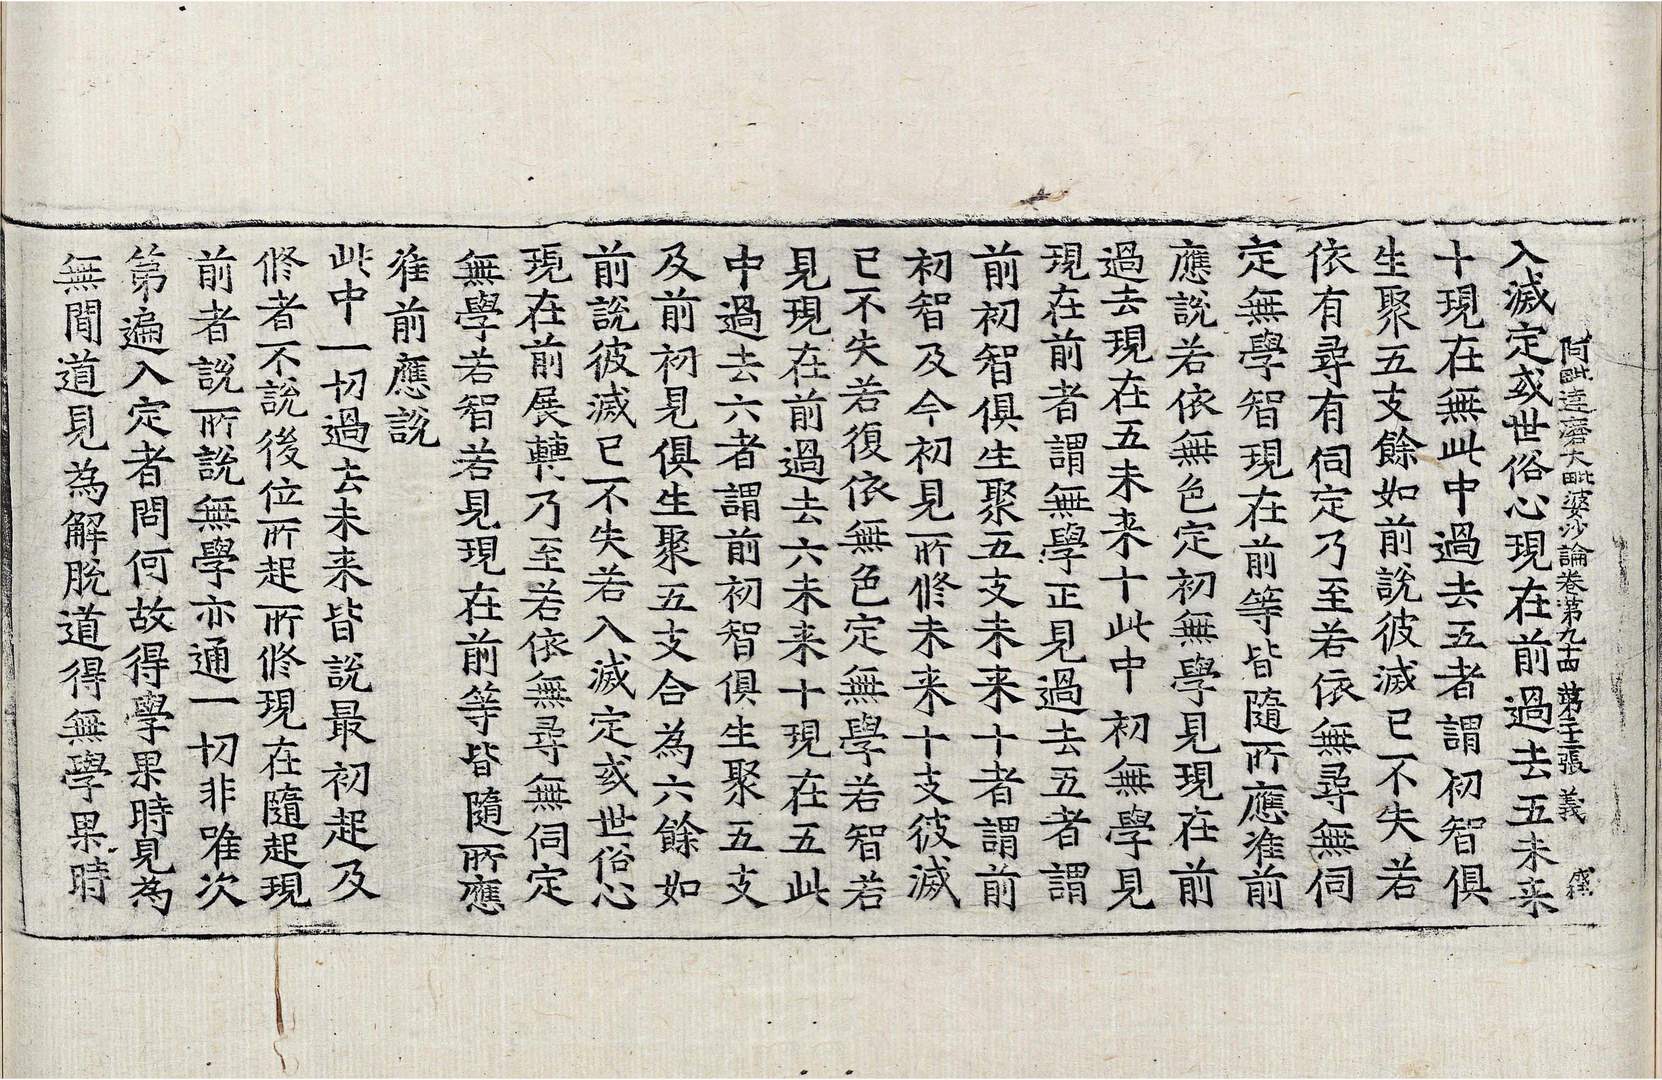 阿毗達磨大毗婆沙論卷第九十四 第二十三張 義
入滅定或世俗心現在前過去五未来
十現在無此中過去五者謂初智俱
生聚五支餘如前說彼滅已不失若
依有尋有伺定乃至若依無尋無伺
定無學智現在前等皆隨所應准前
應說若依無色定初無學見現在前
過去現在五未来十此中初無學見
現在前者謂無學正見過去五者謂
前初智俱生聚五支未来十者謂前
初智及今初見所修未来十支彼滅
已不失若復依無色定無學若智若
見現在前過去六未来十現在五此
中過去六者謂前初智俱生聚五支
及前初見俱生聚五支合為六餘如
前說彼滅已不失若入滅定或世俗心
現在前展轉乃至若依無尋無伺定
無學若智若見現在前等皆隨所應
准前應說
此中一切過去未来皆說最初起及
修者不說後位所起所修現在隨起現
前者說所說無學亦通一切非唯次
第遍入定者問何故得學果時見為
無閒道見為解脫道得無學果時